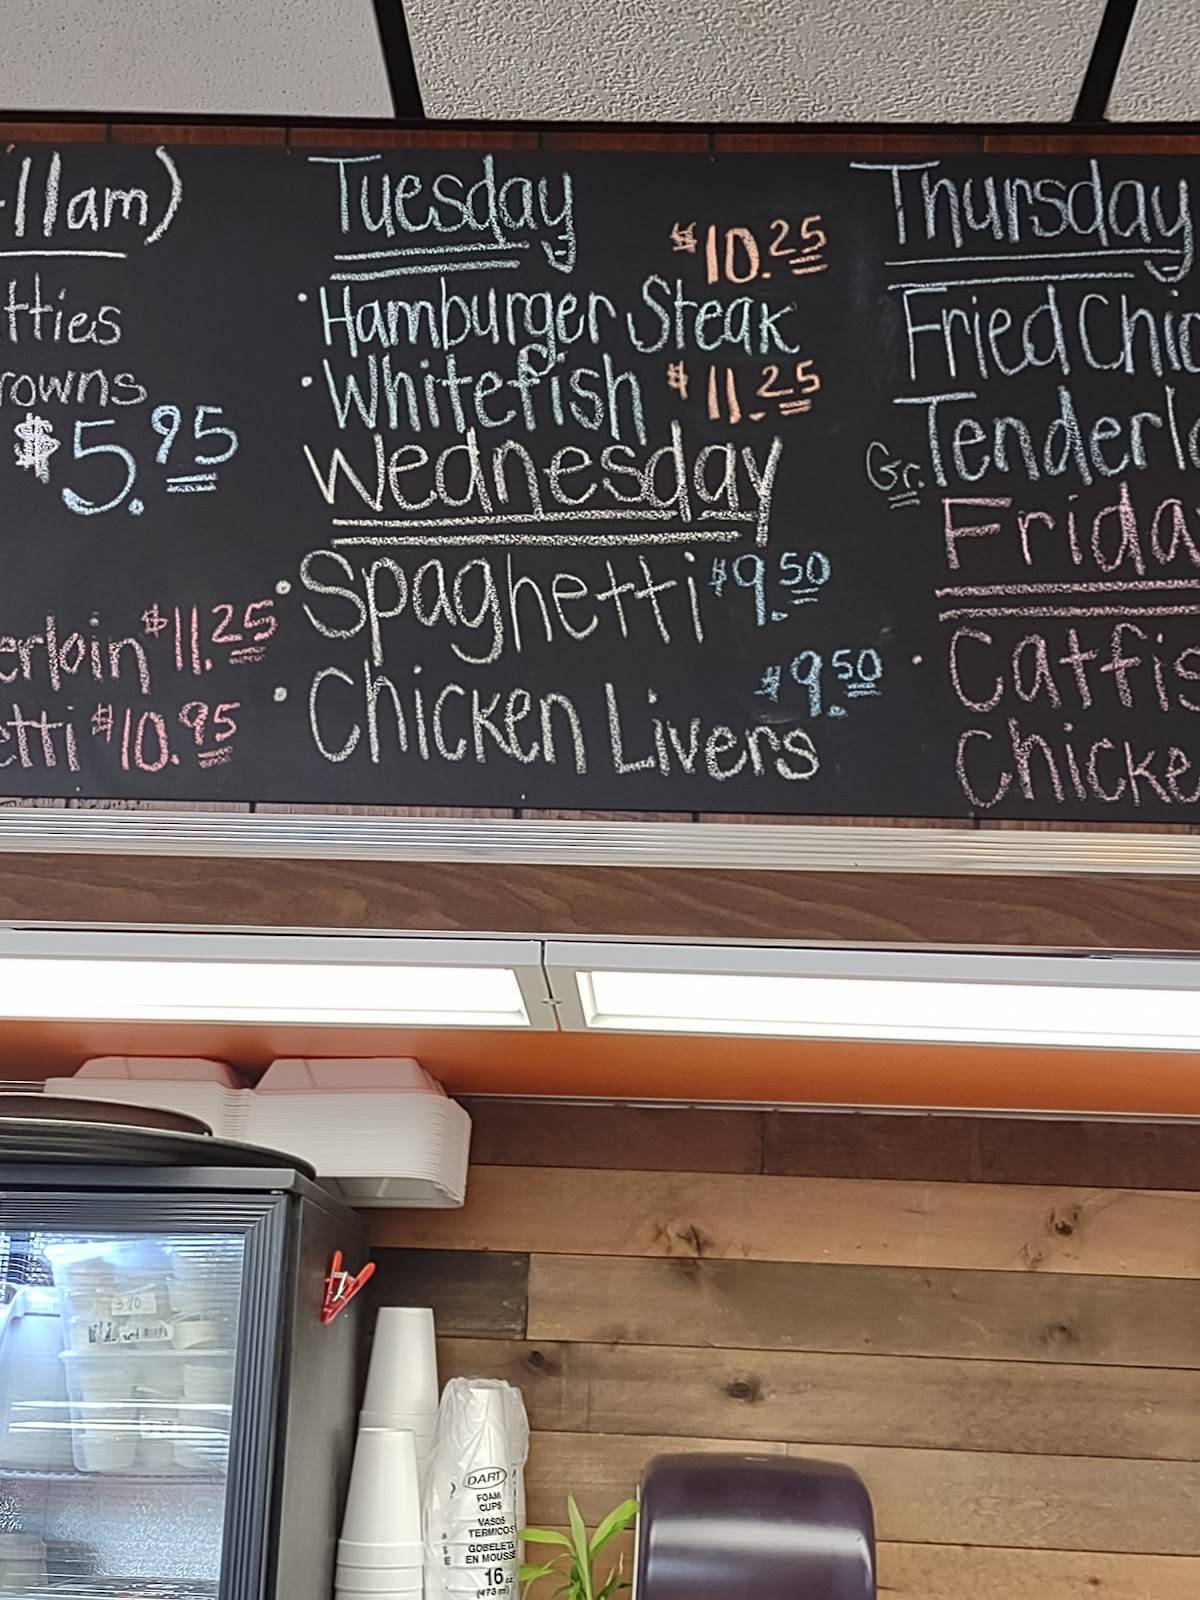 -11am)
tties
rowns
$5.95
erloin $11.25
etti $10.95
Tuesday
$10.25
· Hamburger Steak
· Whitefish $11.25
Wednesday
· Spaghetti $9.50
$9.50
· Chicken Livers
Thursday
Fried Chic
Gr. Tenderlo
Frida
· Catfis
Chicke
3-20
DART
FOAM
CUPS
VASOS
TERMICOS
GOBELETS
EN MOUSSE
16 oz
(473 ml)